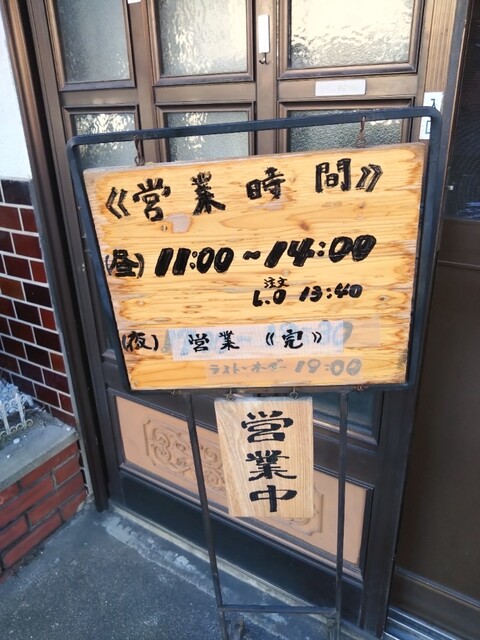 《営業時間》
(昼) 11:00~14:00
注文
L.O 13:40
(夜) 営業《完》
ラスト・オーダー 19:00
営
業
中